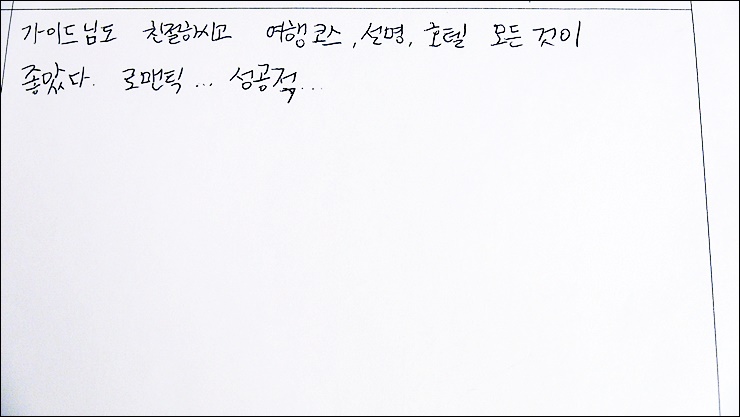 가이드님도 친절하시고 여행코스, 설명, 호텔 모든 것이
좋았다. 로맨틱... 성공적...